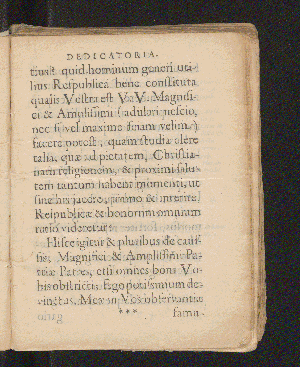 DEDICATORIA.
tius? quid hominum generi uti-
lius Respublica bene constituta
qualis Vestra est V. V. Magnifi-
ci & Amplissimi (adulari nescio,
nec si vel maxime sciam velim)
facere potest, quam studia alere
talia, quæ ad pietatem, Christia-
nam religionem, & proximi salu-
tem tantum habent momenti, ut
sine his jacere, immo & interire
Reipublicæ & bonorum omnium
ratio videretur?
Hisce igitur & pluribus de caus-
sis, Magnifici & Amplissimi Pa-
triæ Patres, etsi omnes boni Vo-
bis obstricti: Ego potissimum de-
vinctus. Mea in Vos observantia
***
famu-